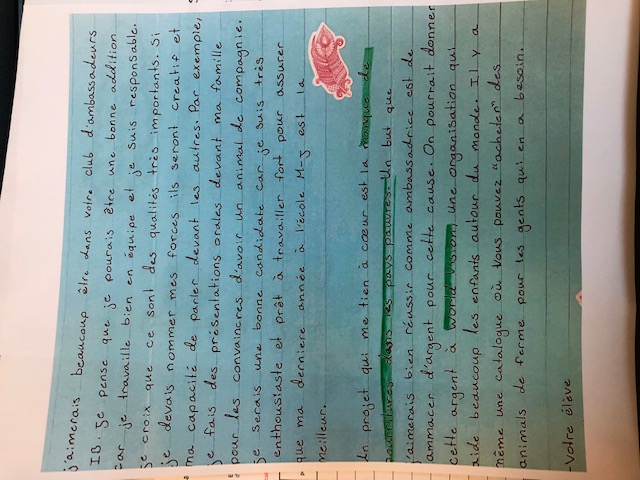 j'aimerais beaucoup être dans votre club d'ambassadeurs
IB. Je pense que je pourais être une bonne addition
car je travaille bien en équipe et je suis responsable.
Je croix que ce sont des qualités très importants. Si
je devais nommer mes forces ils seront créatif et
ma capacité de parler devant les autres. Par exemple,
je fais des présentations orales devant ma famille
pour les convaincres d'avoir un animal de compagnie.
Je serais une bonne candidate car je suis très
enthousiaste et prêt à travailler fort pour assurer
que ma derniere année à l'école M-J est la
meilleur.
Un projet qui me tien à cœur est la manque de
nourritures dans les pays pauvres. Un but que
j'aimerais bien réussir comme ambassadrice est de
ammacer d'argent pour cette cause. On pourrait donner
cette argent à World Vision, une organisation qui
aide beaucoup les enfants autour du monde. Il y a
même une catalogue où vous pouvez "acheter" des
animals de ferme pour les gents qui en a besoin.
-Votre élève